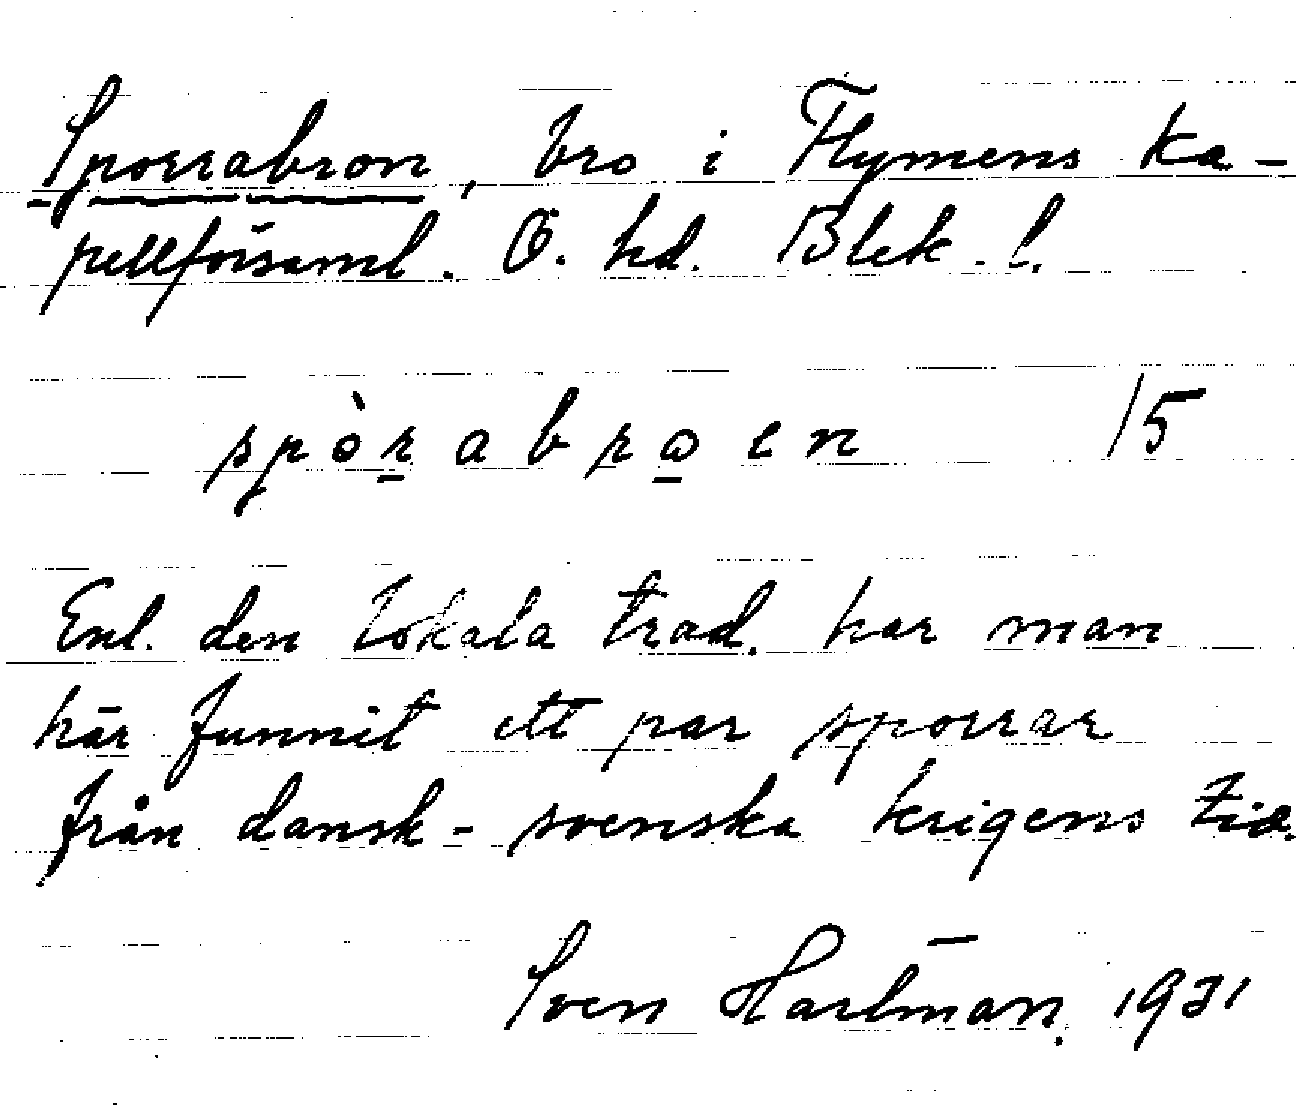 Sporrabron, bro i Flymens ka-
pellförsaml. Ö. hd. Blek. l.
spòr̲abro̲en /5
Enl. den lokala trad. har man
här funnit ett par sporrar
från dansk-svenska krigens tid.
Sven Hartman. 1931